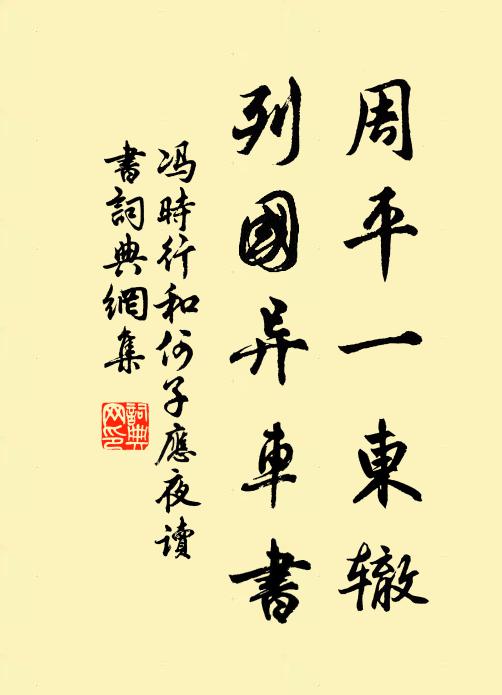 周平一東辙
列國异車書
冯時行和何子應夜讀
書詞典網集
詞典网印